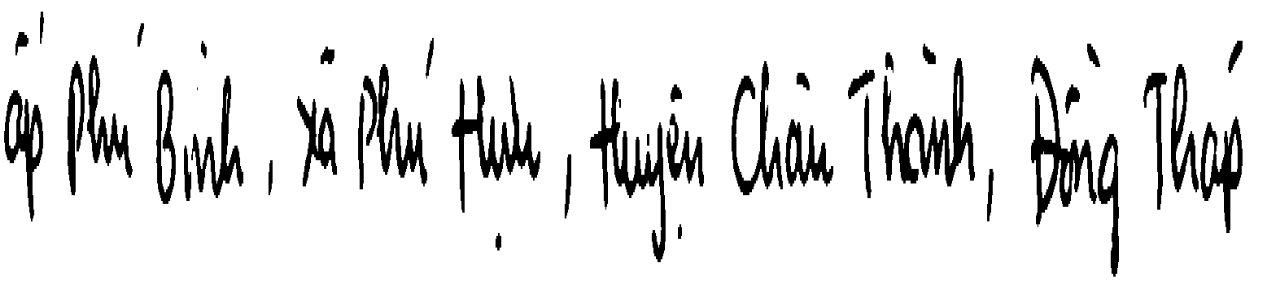 ấp Phú Bình, Xã Phú Hựu, Huyện Châu Thành, Đồng Tháp